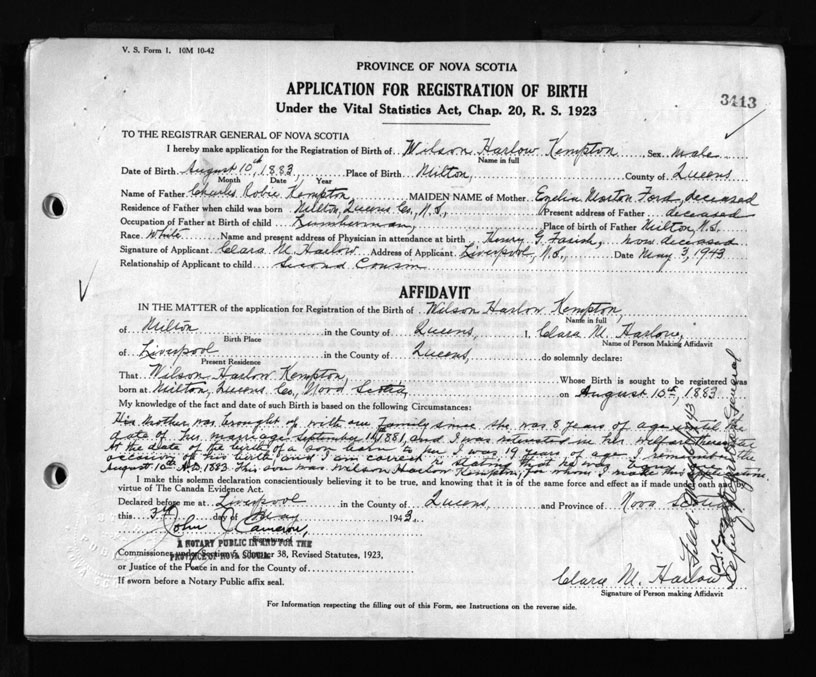 V. S. Form 1. 10M 10-42
PROVINCE OF NOVA SCOTIA
APPLICATION FOR REGISTRATION OF BIRTH
3413
Under the Vital Statistics Act, Chap. 20, R. S. 1923
TO THE REGISTRAR GENERAL OF NOVA SCOTIA
I hereby make application for the Registration of Birth of Wilson Harlow Kempton, Sex male
Name in full
Date of Birth August 10th, 1883, Place of Birth Milton, County of Queens
Month Date Year
Name of Father Charles Robie Kempton, MAIDEN NAME of Mother Morton Ford, deceased
Residence of Father when child was born Milton, Queens Co., N.S., Present address of Father deceased
Occupation of Father at Birth of child Lumberman, Place of birth of Father Milton, N.S.
Race White Name and present address of Physician in attendance at birth Henry G. Farish, now deceased
Signature of Applicant Clara M. Harlow Address of Applicant Liverpool, N.S., Date May 3, 1943
Relationship of Applicant to child Second Cousin
AFFIDAVIT
IN THE MATTER of the application for Registration of the Birth of Wilson Harlow Kempton,
Name in full
of Milton in the County of Queens, I, Clara M. Harlow,
Birth Place Name of Person Making Affidavit
of Liverpool in the County of Queens, do solemnly declare:
Present Residence
That Wilson Harlow Kempton, Whose Birth is sought to be registered was
born at Milton, Queens Co., Nova Scotia on August 10th, 1883
My knowledge of the fact and date of such Birth is based on the following Circumstances:
His Mother was brought up with our Family since she was 8 years of age until the
date of her marriage September 1881, and I was interested in her welfare thereafter
At the date of the birth of a son born to her I was 19 years of age. I remember the
occasion of his birth and I am correct in stating that he was born on
August 10th A.D. 1883. This son was Wilson Harlow Kempton, for whom I make this application.
I make this solemn declaration conscientiously believing it to be true, and knowing that it is of the same force and effect as if made under oath and by
virtue of The Canada Evidence Act.
Declared before me at Liverpool in the County of Queens, and Province of Nova Scotia
this 3rd day of May 1943.
John C. Cameron,
A NOTARY PUBLIC IN AND FOR THE
Commissioner under Section 5, Chapter 38, Revised Statutes, 1923,
PROVINCE OF NOVA SCOTIA
or Justice of the Peace in and for the County of
If sworn before a Notary Public affix seal.
Clara M. Harlow
Signature of Person making Affidavit
For Information respecting the filling out of this Form, see Instructions on the reverse side.
Filed
Deputy Registrar General